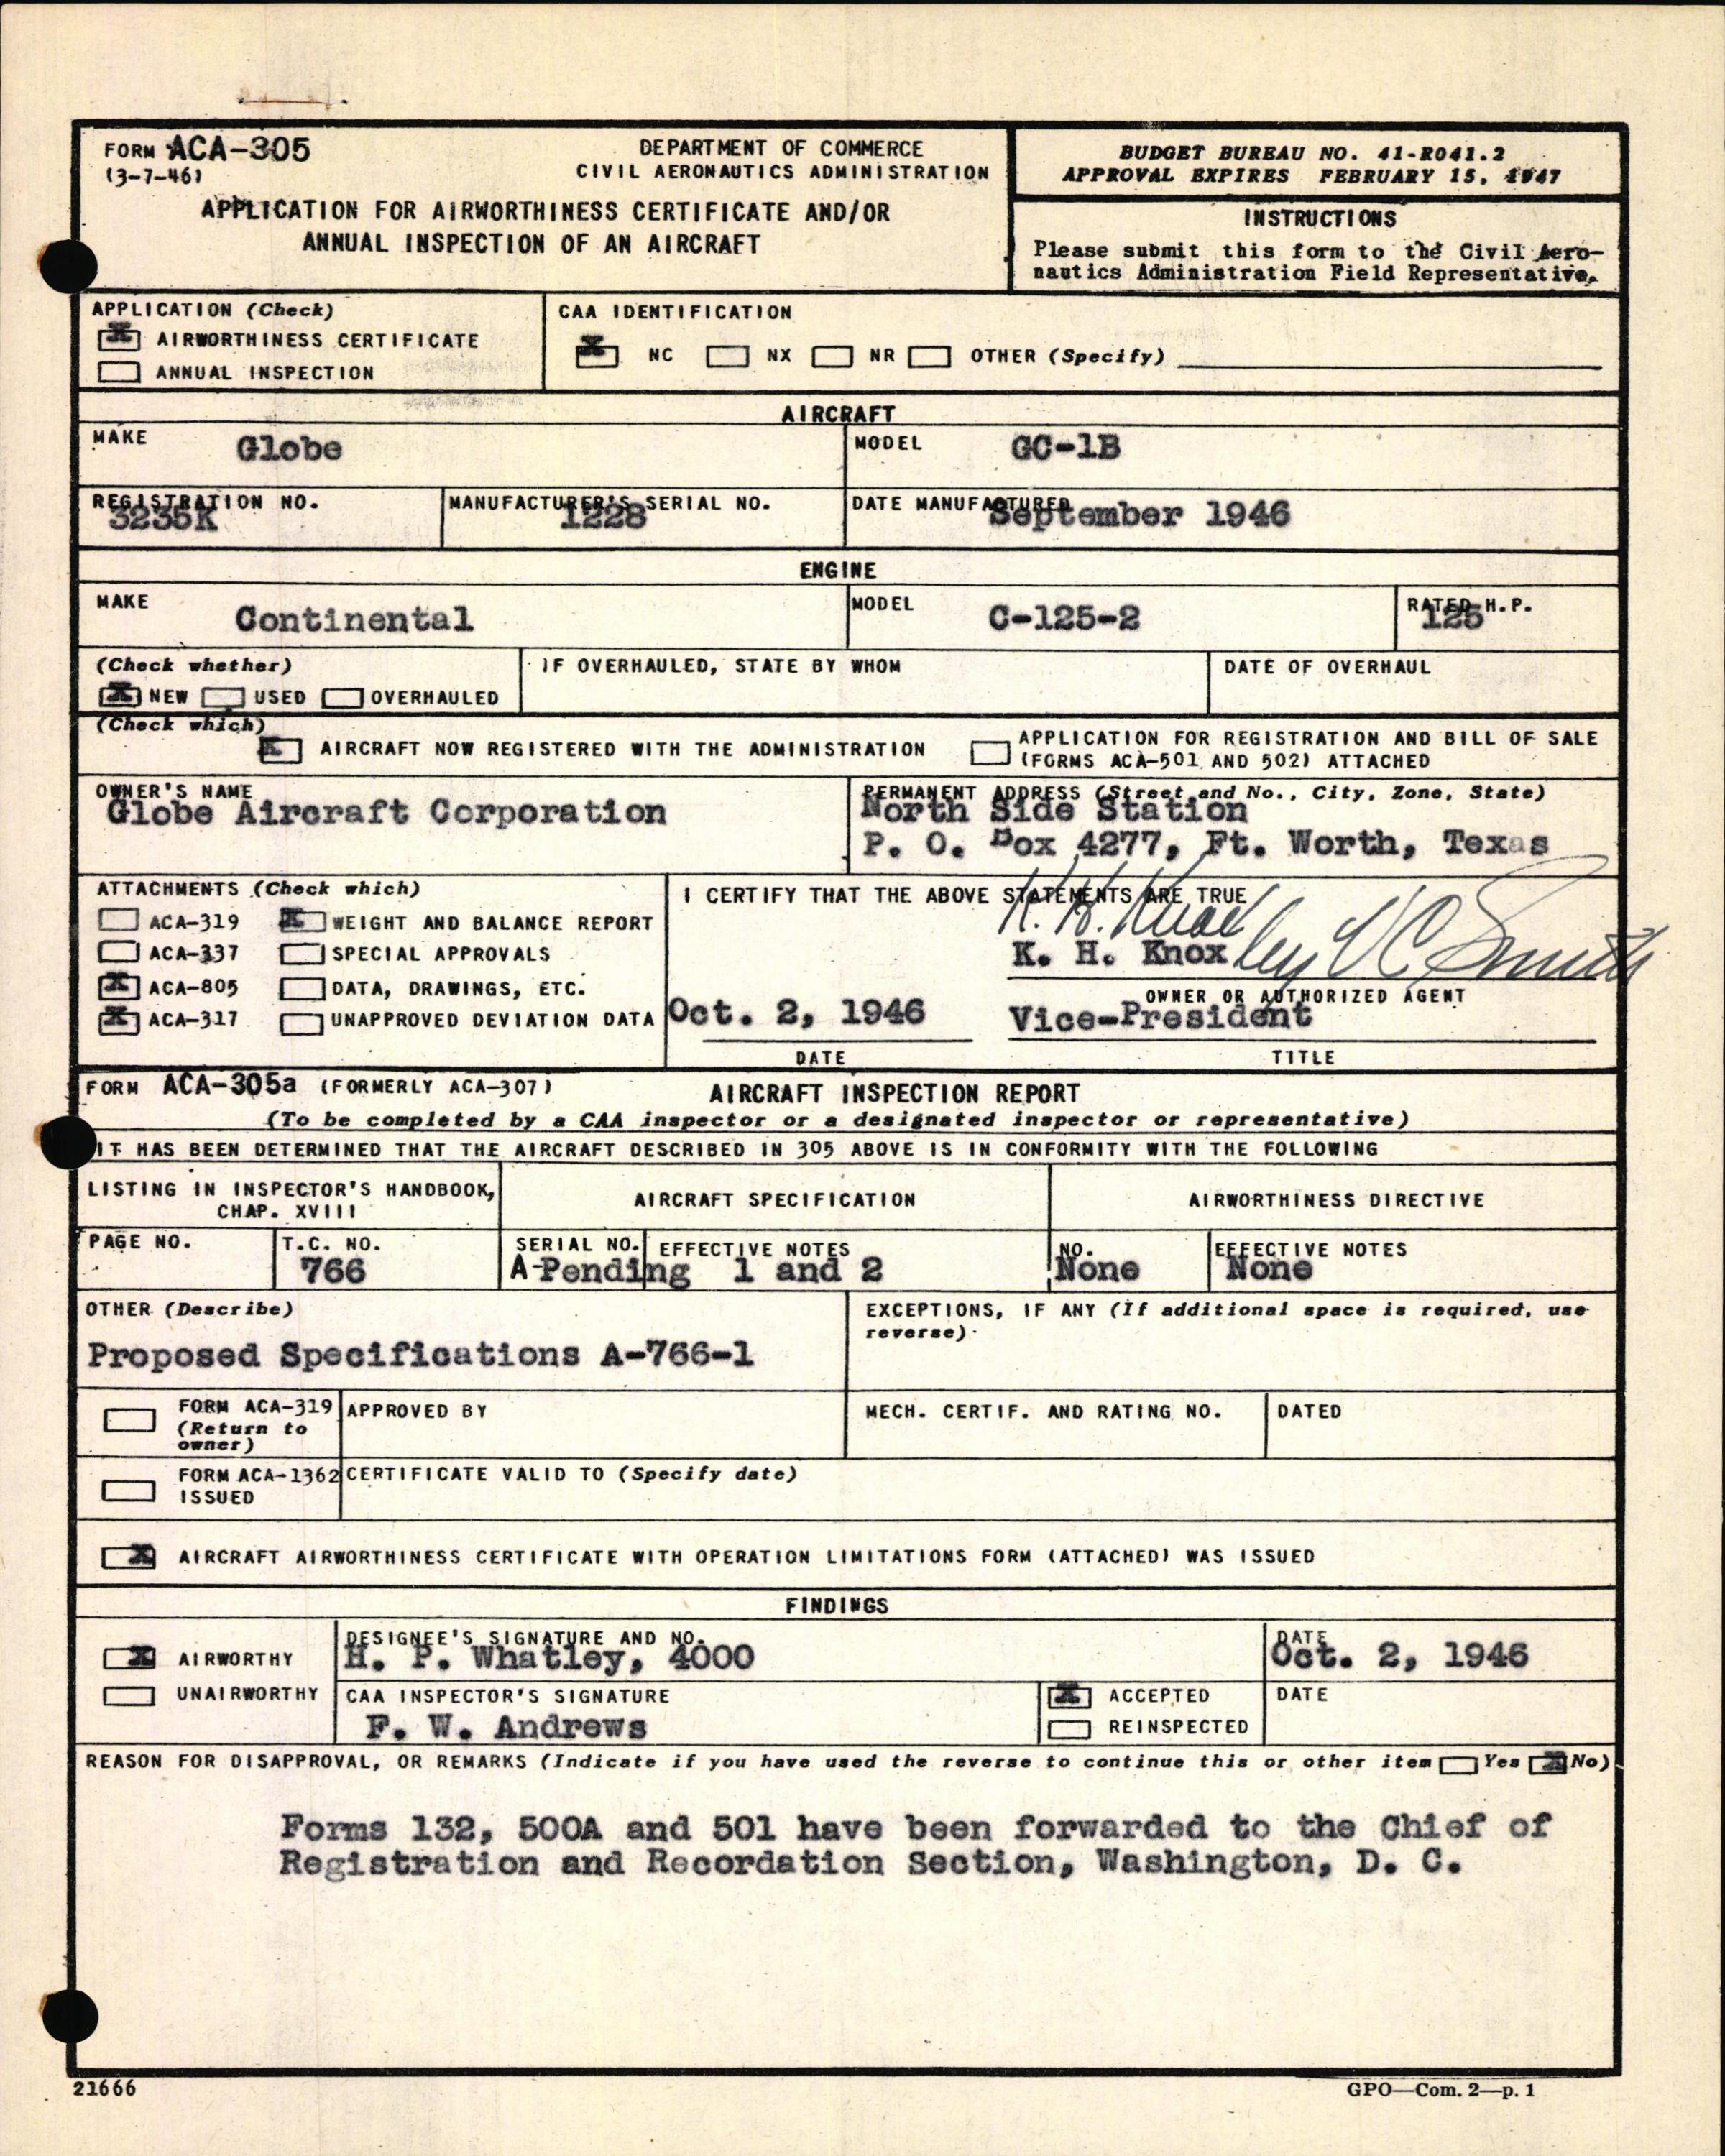 FORM ACA-305
(3-7-46)
DEPARTMENT OF COMMERCE
CIVIL AERONAUTICS ADMINISTRATION
APPLICATION FOR AIRWORTHINESS CERTIFICATE AND/OR
ANNUAL INSPECTION OF AN AIRCRAFT
BUDGET BUREAU NO. 41-R041.2
APPROVAL EXPIRES FEBRUARY 15, 1947
INSTRUCTIONS
Please submit this form to the Civil Aero-
nautics Administration Field Representative.
APPLICATION (Check)
X AIRWORTHINESS CERTIFICATE
ANNUAL INSPECTION
CAA IDENTIFICATION
X NC NX NR OTHER (Specify)
AIRCRAFT
MAKE Globe
MODEL GC-1B
REGISTRATION NO. 3235K
MANUFACTURER'S SERIAL NO. 1228
DATE MANUFACTURED September 1946
ENGINE
MAKE Continental
MODEL C-125-2
RATED H.P. 125
(Check whether)
X NEW USED OVERHAULED
IF OVERHAULED, STATE BY WHOM
DATE OF OVERHAUL
(Check which)
X AIRCRAFT NOW REGISTERED WITH THE ADMINISTRATION
APPLICATION FOR REGISTRATION AND BILL OF SALE
(FORMS ACA-501 AND 502) ATTACHED
OWNER'S NAME
Globe Aircraft Corporation
PERMANENT ADDRESS (Street and No., City, Zone, State)
North Side Station
P. O. Box 4277, Ft. Worth, Texas
ATTACHMENTS (Check which)
ACA-319 X WEIGHT AND BALANCE REPORT
ACA-337 SPECIAL APPROVALS
X ACA-805 DATA, DRAWINGS, ETC.
X ACA-317 UNAPPROVED DEVIATION DATA
I CERTIFY THAT THE ABOVE STATEMENTS ARE TRUE
K. H. Knox by V C Smith
K. H. Knox
OWNER OR AUTHORIZED AGENT
Oct. 2, 1946 Vice-President
DATE TITLE
FORM ACA-305a (FORMERLY ACA-307) AIRCRAFT INSPECTION REPORT
(To be completed by a CAA inspector or a designated inspector or representative)
IT HAS BEEN DETERMINED THAT THE AIRCRAFT DESCRIBED IN 305 ABOVE IS IN CONFORMITY WITH THE FOLLOWING
LISTING IN INSPECTOR'S HANDBOOK,
CHAP. XVIII
AIRCRAFT SPECIFICATION
AIRWORTHINESS DIRECTIVE
PAGE NO.
T.C. NO. 766
SERIAL NO. EFFECTIVE NOTES
A-Pending 1 and 2
NO. None
EFFECTIVE NOTES None
OTHER (Describe)
Proposed Specifications A-766-1
EXCEPTIONS, IF ANY (If additional space is required, use
reverse)
FORM ACA-319
(Return to
owner)
APPROVED BY
MECH. CERTIF. AND RATING NO.
DATED
FORM ACA-1362
ISSUED
CERTIFICATE VALID TO (Specify date)
X AIRCRAFT AIRWORTHINESS CERTIFICATE WITH OPERATION LIMITATIONS FORM (ATTACHED) WAS ISSUED
FINDINGS
X AIRWORTHY
UNAIRWORTHY
DESIGNEE'S SIGNATURE AND NO.
H. P. Whatley, 4000
DATE
Oct. 2, 1946
CAA INSPECTOR'S SIGNATURE
F. W. Andrews
X ACCEPTED
REINSPECTED
DATE
REASON FOR DISAPPROVAL, OR REMARKS (Indicate if you have used the reverse to continue this or other item Yes X No)
Forms 132, 500A and 501 have been forwarded to the Chief of
Registration and Recordation Section, Washington, D. C.
21666
GPO—Com. 2—p. 1